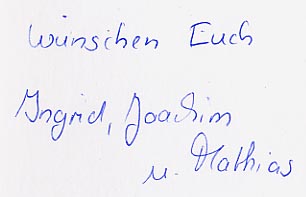 wünschen Euch
Ingrid, Joachim
u. Mathias